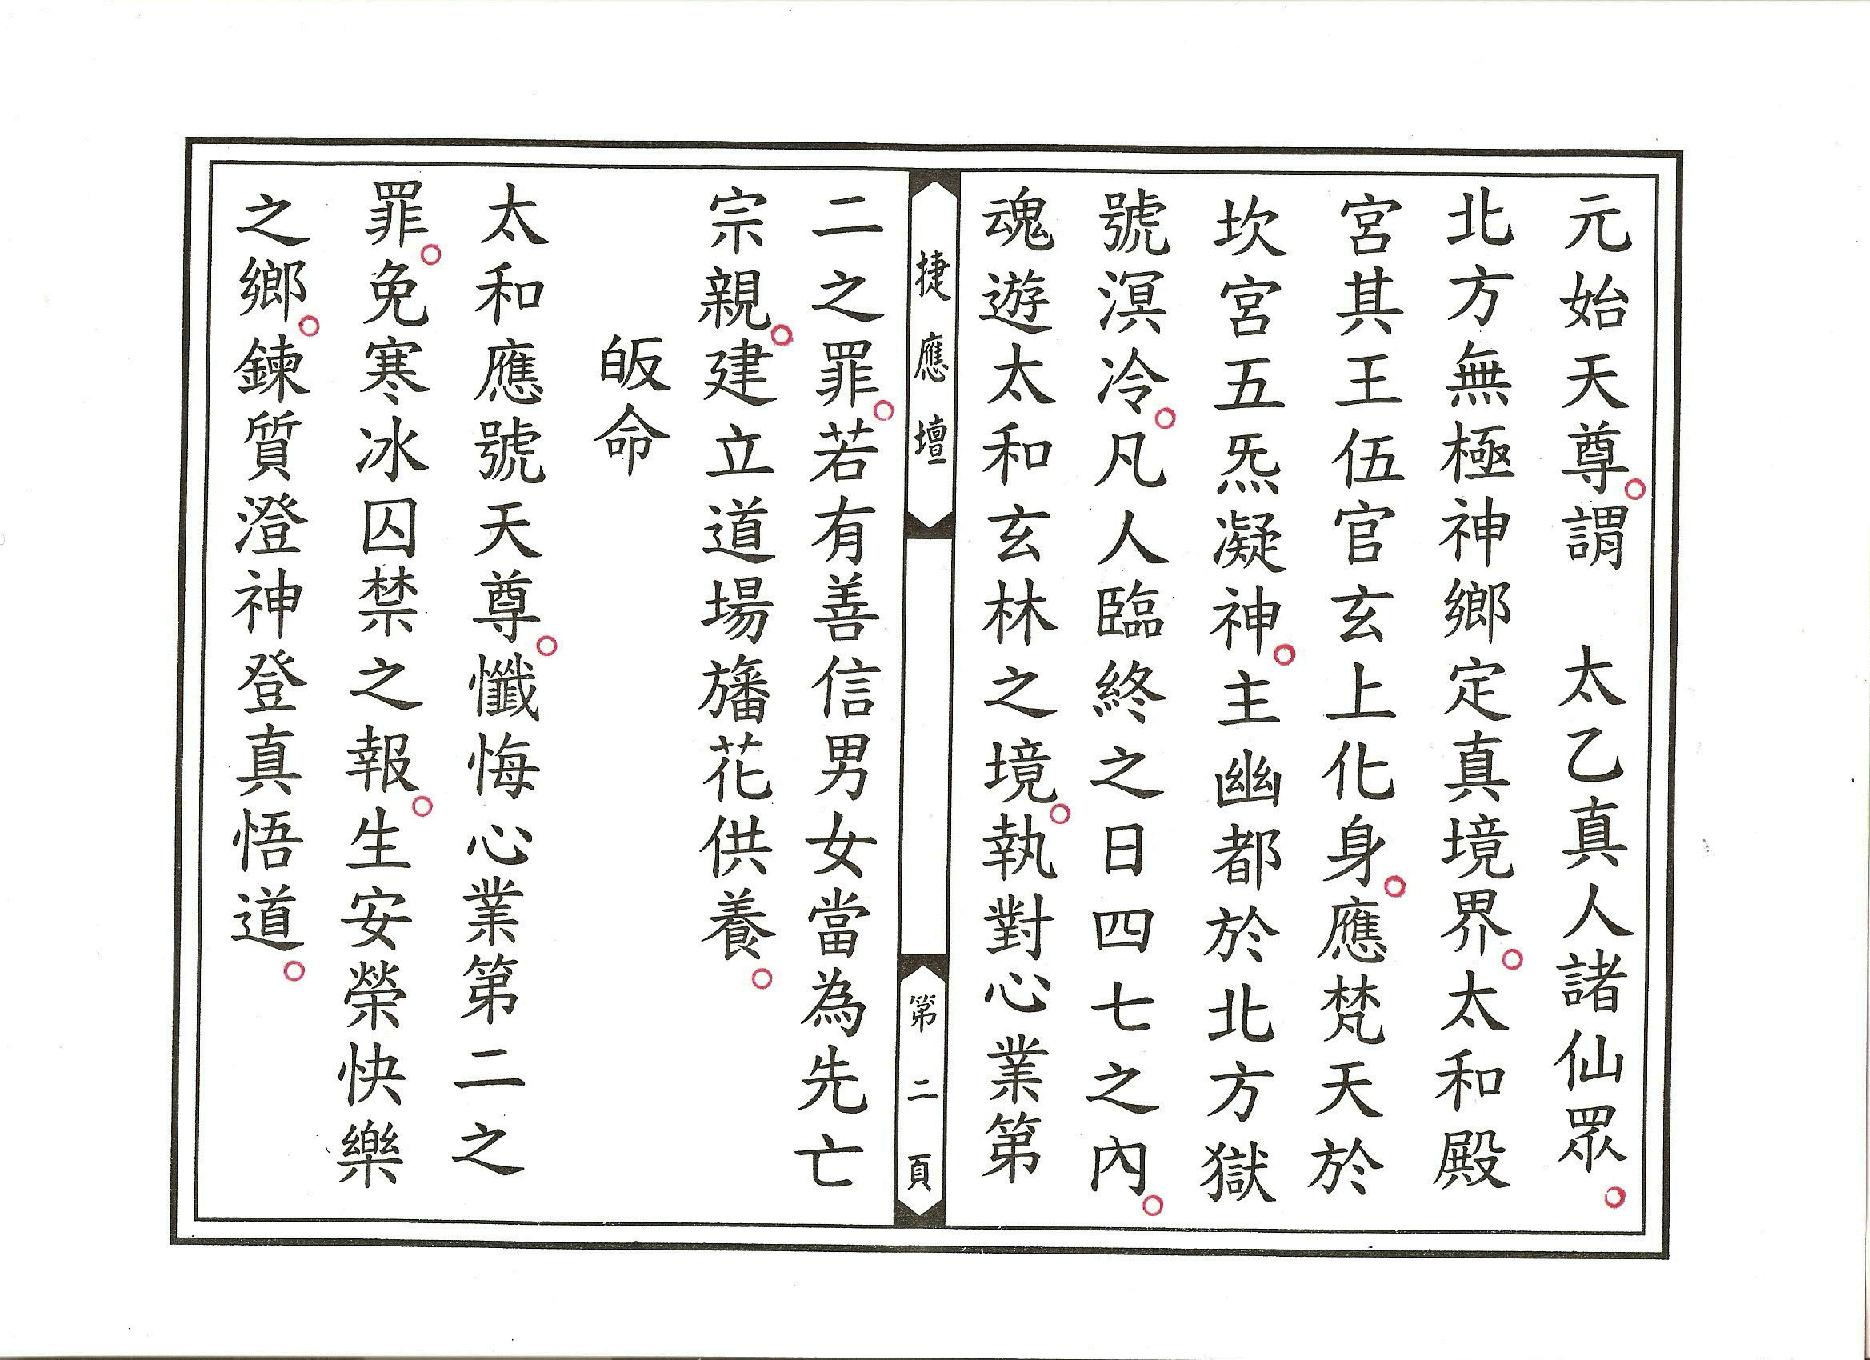 元始天尊。謂　太乙真人諸仙眾。
北方無極神鄉定真境界。太和殿
宮其王伍官玄上化身。應梵天於
坎宮五炁凝神。主幽都於北方獄
號溟冷。凡人臨終之日四七之內。
魂遊太和玄林之境。執對心業第
捷應壇
第二頁
二之罪。若有善信男女當為先亡
宗親。建立道場旛花供養。
皈命
太和應號天尊。懺悔心業第二之
罪。免寒冰囚禁之報。生安榮快樂
之鄉。鍊質澄神登真悟道。